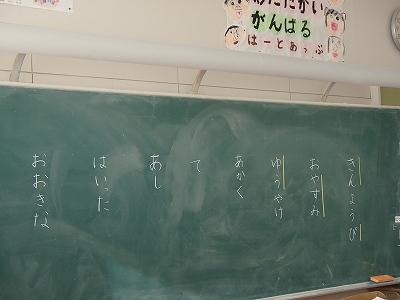 あたたかい
がんばる
はーとあっぷ
きんようび
おやすみ
ゆうやけ
あかく
て
あし
はいった
おおきな